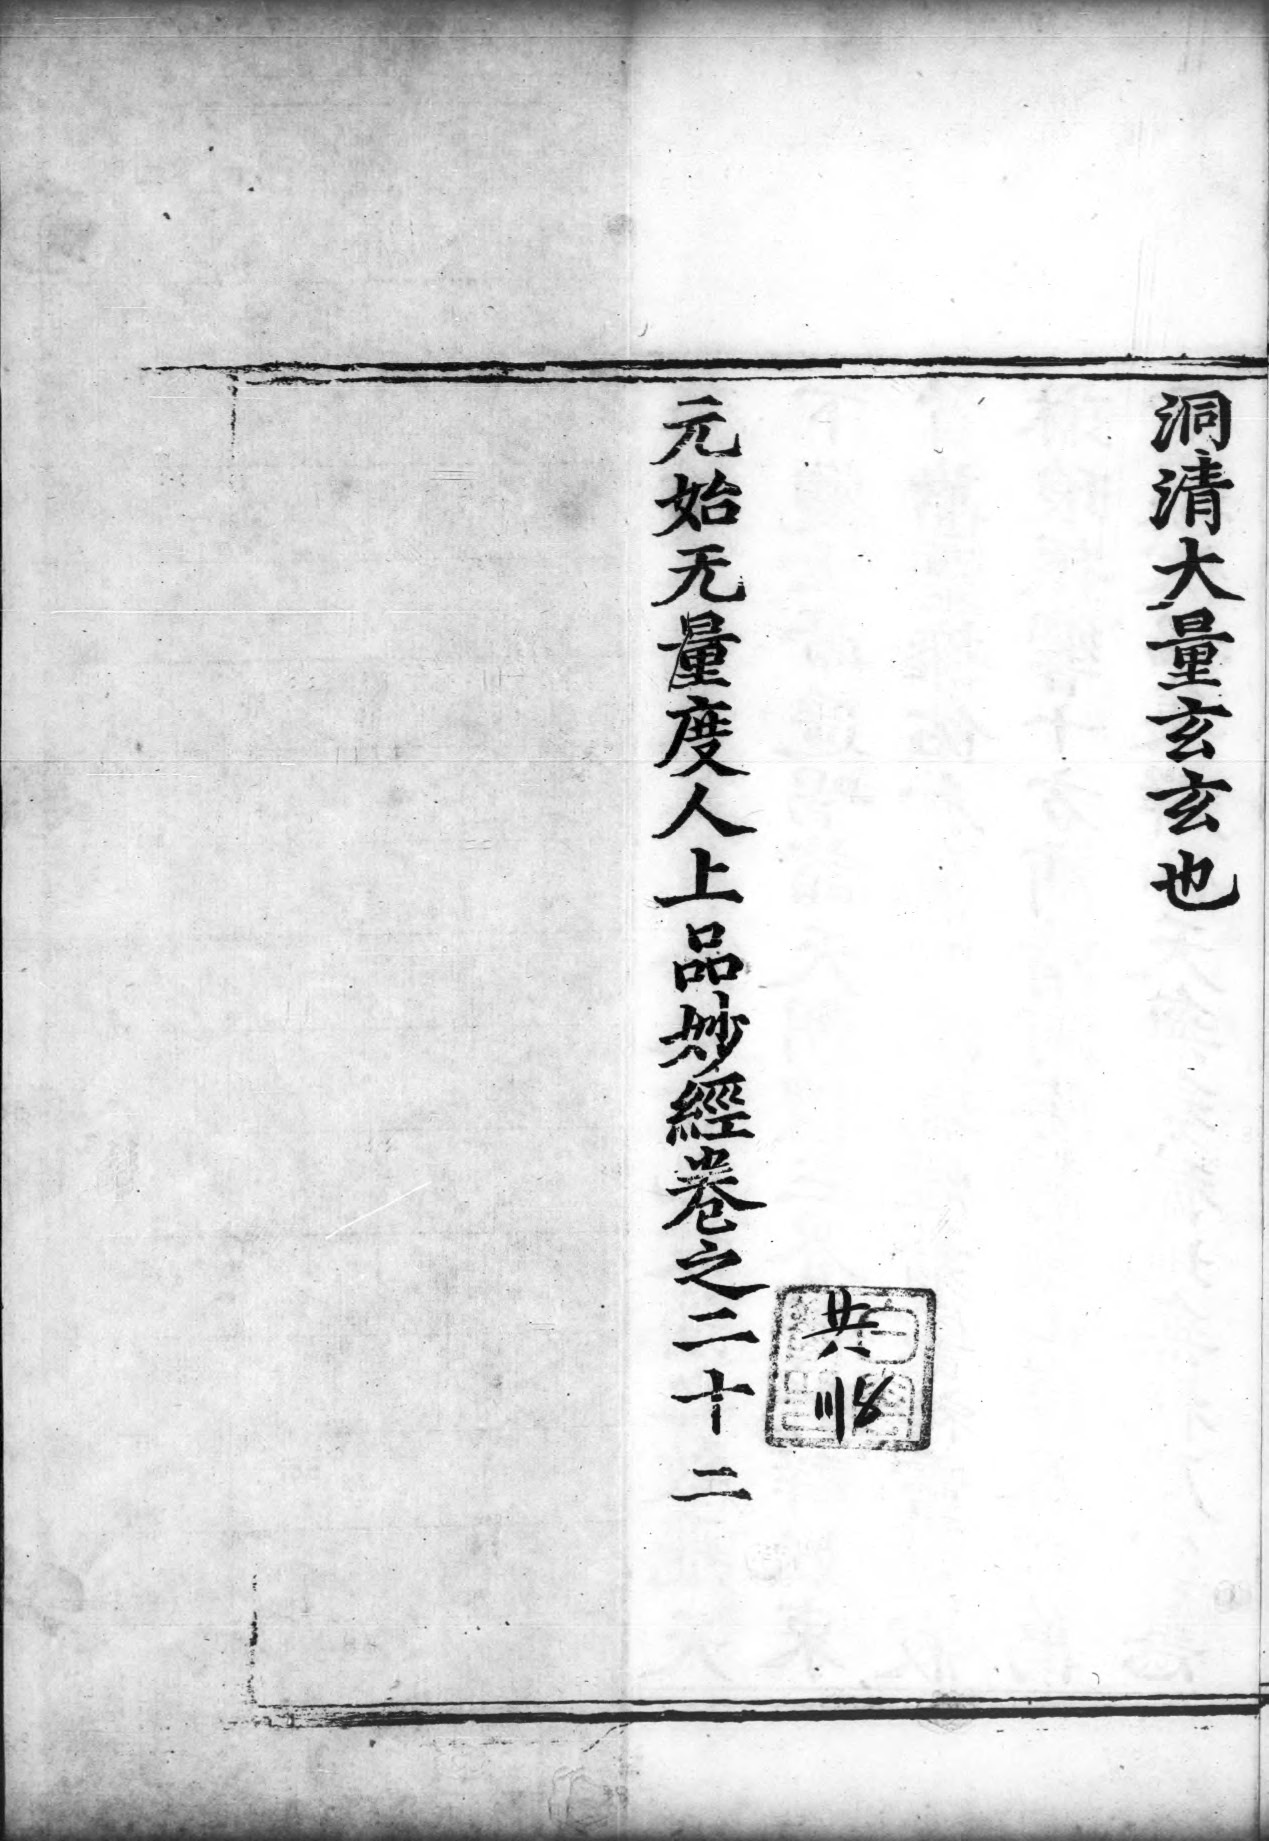 洞清大量玄玄也
元始无量度人上品妙經卷之二十二